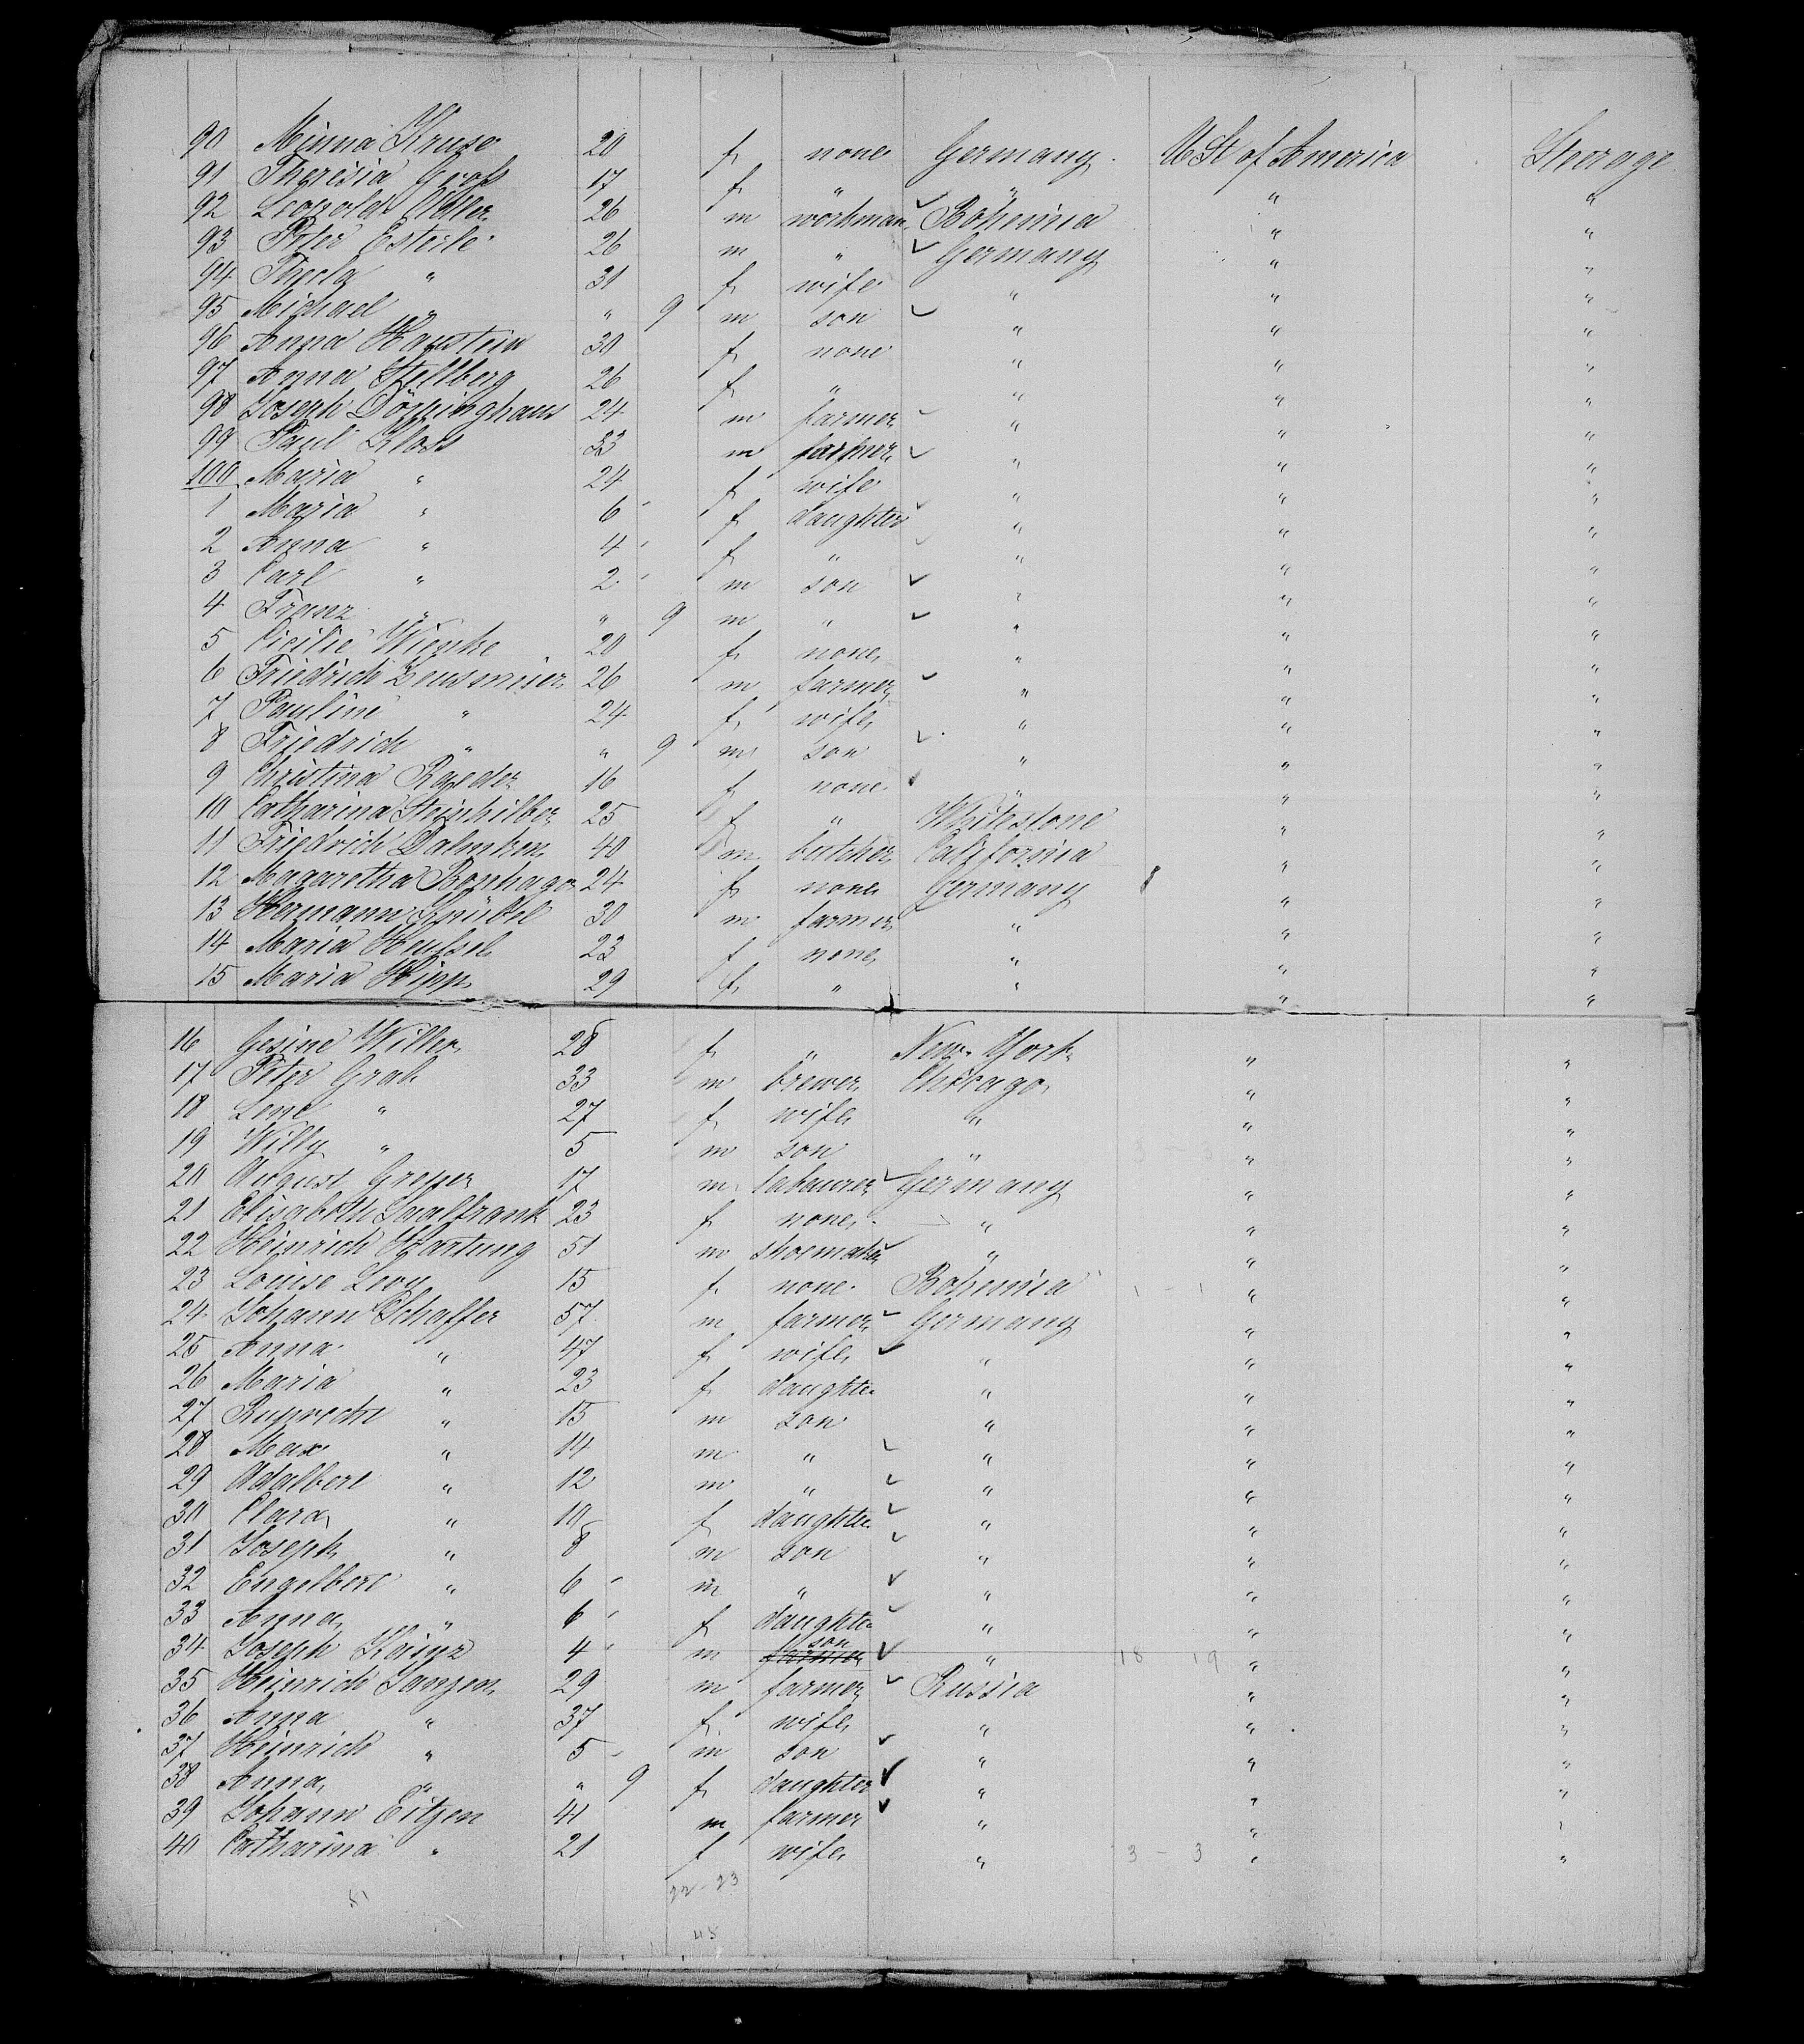 90 Minna Kruse 20 f none Germany. U St of America Steerage
91 Theresia Groß 17 f " " " "
92 Leopold Adler 26 m workman Bohemia " "
93 Peter Esterle 26 m " Germany " "
94 Thecla " 31 f wife " " "
95 Michael " " 9 m son " " "
96 Anna Haustein 30 f none " " "
97 Anna Stellberg 26 f " " " "
98 Joseph Döppinghaus 24 m farmer " " "
99 Paul Kloss 33 m farmer " " "
100 Maria " 24 f wife " " "
1 Maria " 6 f daughter " " "
2 Anna " 4 f " " " "
3 Carl " 2 m son " " "
4 Franz " " 9 m " " " "
5 Cicilie Wienke 20 f none " " "
6 Friedrich Zeusmeiser 26 m farmer " " "
7 Pauline " 24 f wife " " "
8 Friedrich " " 9 m son " " "
9 Christina Raeder 16 f none " " "
10 Catharina Steinhilber 25 f " Whitestone " "
11 Friedrich Dalmken 40 m butcher California " "
12 Magaretha Bophago 24 f none Germany " "
13 Hermann 30 m farmer " " "
14 Maria 23 f none " " "
15 Maria Hipp 29 f " " " "
16 Gesine Willer 28 f " New York " "
17 Peter Grab 33 m brewer Chicago " "
18 Lene " 27 f wife " " "
19 Willy " 5 m son " " "
20 August Greper 17 m labourer Germany " "
21 Elisabeth Saalfrank 23 f none " " "
22 Heinrich Hartung 51 m shoemaker " " "
23 Louise Levy 15 f none Bohemia 1 - 1 " "
24 Johann Schaffer 57 m farmer Germany " "
25 Anna " 47 f wife " " "
26 Maria " 23 f daughter " " "
27 Ruprecht " 15 m son " " "
28 Max " 14 m " " " "
29 Adalbert " 12 m " " " "
30 Clara " 10 f daughter " " "
31 Joseph " 8 m son " " "
32 Engelbert " 6 m " " " "
33 Anna " 6 f daughter " " "
34 Joseph Kainz 4 m farmer son " 18 19 " "
35 Heinrich Janzen 29 m farmer Russia " "
36 Anna " 37 f wife " " "
37 Heinrich " 5 m son " " "
38 Anna " " 9 f daughter " " "
39 Johann Eitzen 41 m farmer " " "
40 Catharina " 21 f wife " 3 - 3 " "
51 22-23
48